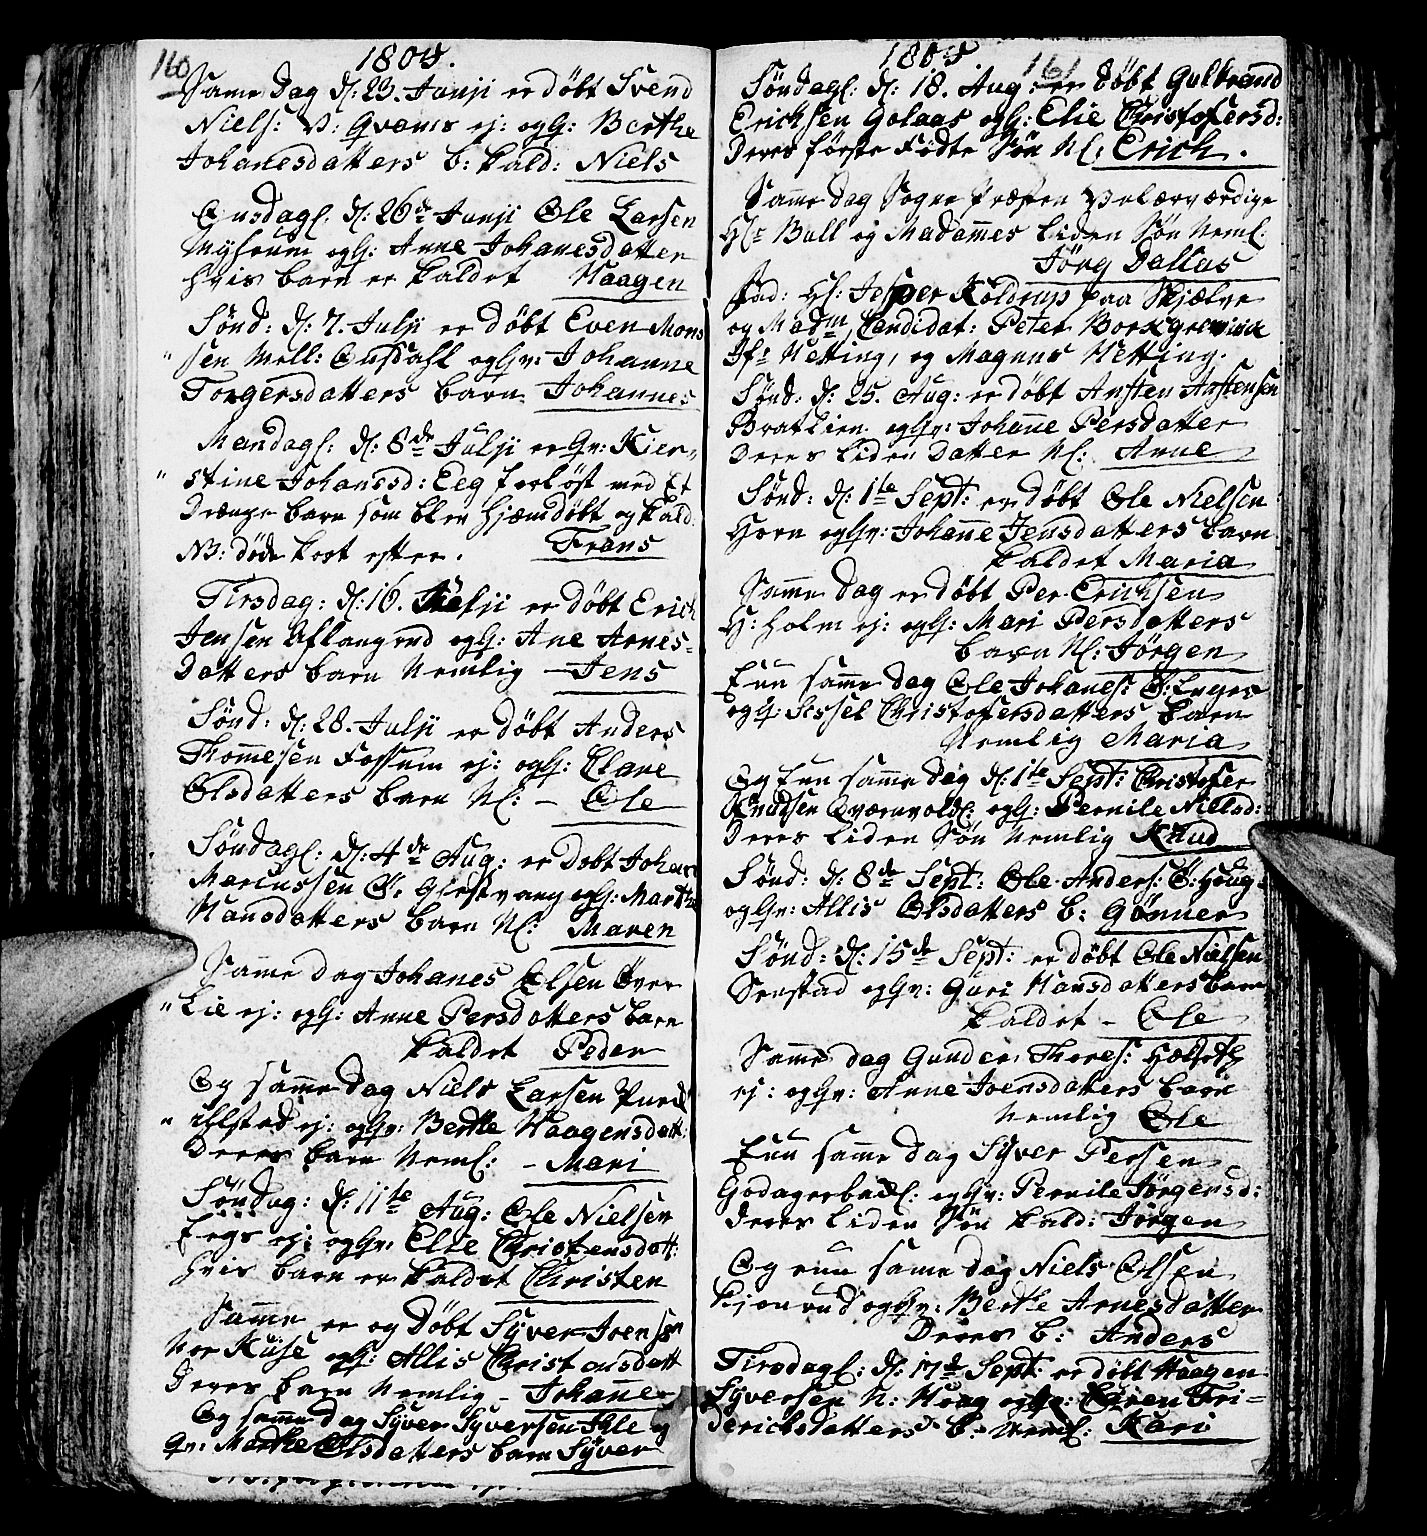 160
1805.
Same Dag d: 23. Junji er døbt Svend
Niels: V: Qvæms ej: og h: Berthe
Johanesdatters b: kald: Niels
Onsdagl. d: 26de Junji Ole Larsen
og h: Anne Johanesdatter
hvis barn er kaldet Haagen
Sønd: d: 7. Julji er døbt Even Mons
sen Mell: og hr: Johanne
Torgersdatters barn Johannes
Mandagl. d: 8de Julji er hr: Kier-
stine Johanesd: Eeg forløst med Et
Drænge barn som blev hjemdøbt og kald.
NB: døde kort efter. Frans
Tirsdag: d: 16. Julji er døbt Erich
Jensen og h: Ane Arnes-
Datters barn Nemlig - Jens
Sønd: d: 28. Julji er døbt Anders
Thommesen Fossum ej: og h: Elane
Olsdatters barn Nl: - Ole
Søndagl: d: 4de Aug: er Døbt Johan
Marcussen Ø. Glestvang og h: Marthe
Hansdatters barn Nl: Maren
Samme dag Johanes Olsen Over
Lie ej: og h: Anne Persdatters barn
kaldet Peder
Og samme Dag Niels Larsen
ej: og hr: Berthe Haagensdatt:
Deres barn Neml: - Mari
Søndag: d: 11te Aug: Ole Nielsen
Eegs ej: og hr. Else Christensdatt:
hvis barn er kaldet Christen
Samme er og Døbt Syver Ivensen
Nor Kuse og h: Allis Christensdatt
Deres barn Nemlig - Johanne
Og samme dag Syver Syversen Ihle og
hr: Marthe Olsdatters barn Syver
1805.
161
Søndagl: d: 18. Aug: er døbt Gulbrand
Erichsen Golaas og h: Elie Christofersd:
Deres første Fødte Søn Nl: Erich.
Samme dag Sogne Præsten Velærværdige
Hr Bull og Madammes liden Søn Neml:
Jørg Dallas
Fad: Hr: Jesper Koldrup paa Skjelve
og Madm, Candidat: Peter Borchgrevink
Jfr Hetting, og Magnus Hetting.
Sønd: d: 25. Aug: er døbt Ansten Anstensen
Bratlien og hr: Johanne Persdatter
Deres liden Datter Nl: Anne
Sønd: d: 1te Sept: er døbt Ole Nielsen
Horn og hr: Johanne Jensdatters barn
kaldet Maria
Samme Dag er døbt Per Erichsen
H: holm ej: og h: Mari Persdatters
barn Nl: Jørgen
Enn samme dag Ole Johanes:
og h: Sissel Christofersdatters barn
Nemlig Maria
Og Enn samme Dag d: 1te Sept: Christofer
Knudsen Qværnvold: og h: Pernile Nielsd:
Deres liden Søn Nemlig Knud
Sønd: d: 8de Sept: Ole Anders: Ø: Houg
og hr: Allis Olsdatters b: Gønner
Sønd: d: 15de Sept: er døbt Ole Nielsen
og hr: Guri Hansdatters barn
kaldet - Ole
Samme dag Gunder Thores:
ej: og hr: Anne Ivensdatters barn
Nemlig Ole
Enn samme dag Syver Persen
Godager og hr: Pernile Jørgensd:
Deres liden Søn kald: Jørgen
Og enn same dag Niels Olsen
og hr: Berthe Arnesdatter
Deres b: Anders
Tirsdagl: d: 17de Sept: er døbt Haagen
Syversen N: Hoag og hr: Chren Fri-
derichsdatters b: Neml: Kari